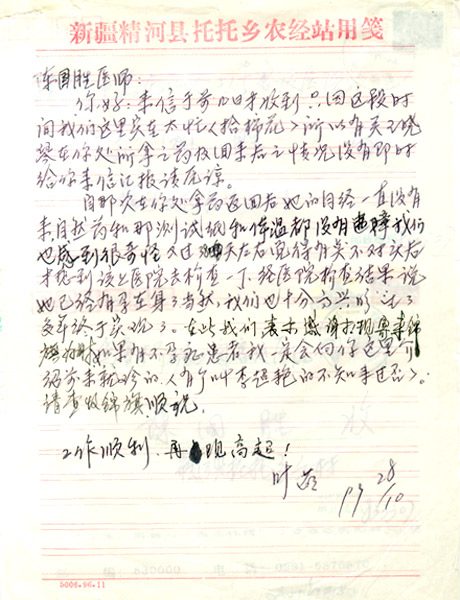 新疆精河县托托乡农经站用笺
陈国胜医师:
你好:来信于前几日来收到只因这段时
间我们这里实在太忙(拾棉花)所以有关
在你处所拿之药权回来后之情况没有即时
给你来信汇报请庆谅。
自那次在你处拿药返回后她的月经一直没有
来自然药和那测试纸和体温都没有 我们
也感到很奇怪 又过 天左右觉得有关不对头后
才想到该上医院去检查一下,经医院检查结果说
她已经有孕在身了当然,我们也十分高兴的
多年终于实现了。在此我们表示感谢 寄来锦
旗 如果有不孕症患者我一定会向你这里介
绍前来就诊的。(有个叫李 艳的不知来过否)。
请查收锦旗顺祝。
工作顺利、再 现高超!
叶
28/10
5006.96.11